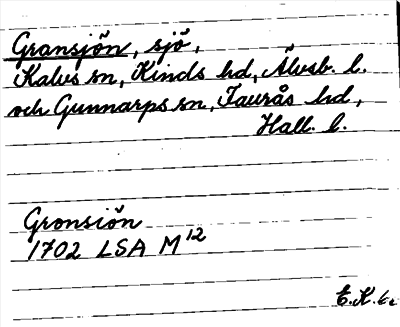 Gransjön, sjö,
Kalvs sn, Kinds hd, Älvsb. l.
och Gunnarps sn, Faurås hd,
Hall. l.
Gronsiön
1702 LSA M12
E.K.